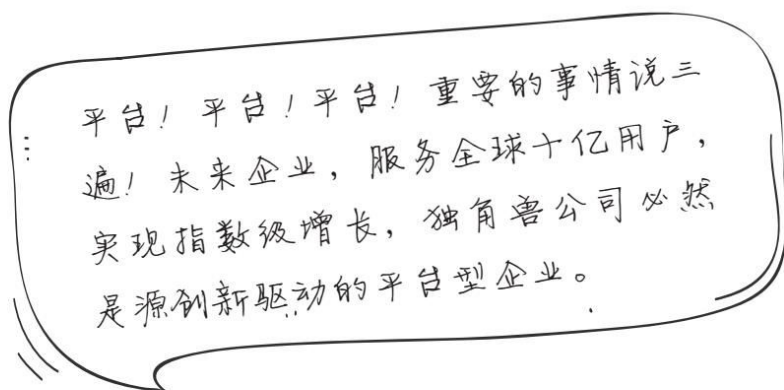 平台！平台！平台！重要的事情说三
遍！未来企业，服务全球十亿用户，
实现指数级增长，独角兽公司必然
是源创新驱动的平台型企业。